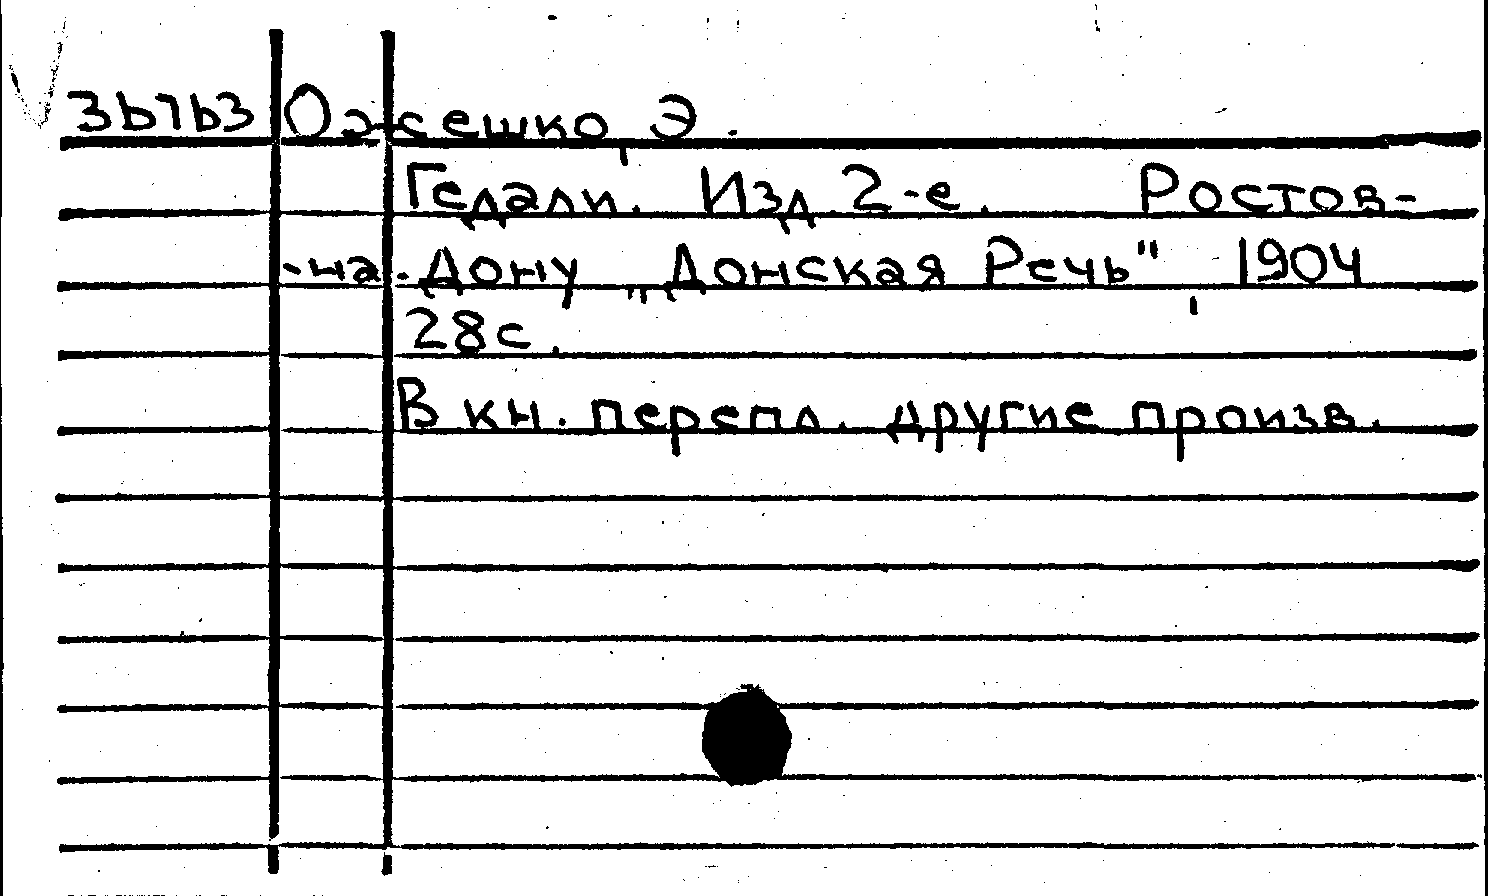 36763 Ожешко, Э.
Гедали. Изд. 2-е. Ростов-
-на-Дону „Донская Речь", 1904
28с.
В кн. перепл. другие произв.